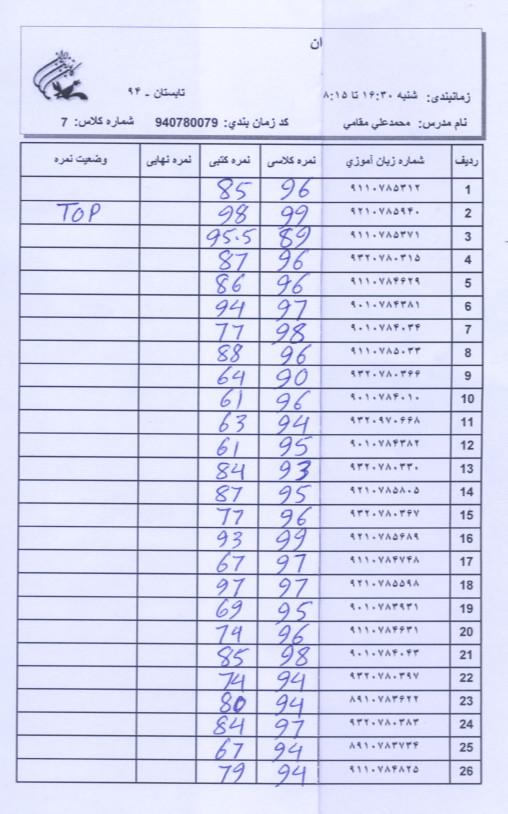 ان
زمانبندی: شنبه ۱۶:۳۰ تا ۸:۱۵ تابستان - ۹۴
نام مدرس: محمدعلي مقامي کد زمان بندي: 940780079 شماره کلاس: 7
ردیف شماره زبان آموزي نمره کلاسی نمره کتبی نمره نهایی وضعیت نمره
1 ۹۱۱۰۷۸۵۳۱۲ 96 85
2 ۹۲۱۰۷۸۵۹۴۰ 99 98 TOP
3 ۹۱۱۰۷۸۵۳۷۱ 89 95.5
4 ۹۳۲۰۷۸۰۳۱۵ 96 87
5 ۹۱۱۰۷۸۴۶۲۹ 96 86
6 ۹۰۱۰۷۸۴۳۸۱ 97 94
7 ۹۰۱۰۷۸۴۰۳۴ 98 77
8 ۹۱۱۰۷۸۵۰۳۳ 96 88
9 ۹۳۲۰۷۸۰۳۶۶ 90 64
10 ۹۰۱۰۷۸۴۰۱۰ 96 61
11 ۹۳۲۰۹۷۰۶۶۸ 94 63
12 ۹۰۱۰۷۸۴۳۸۲ 95 61
13 ۹۳۲۰۷۸۰۳۳۰ 93 84
14 ۹۲۱۰۷۸۵۸۰۵ 95 87
15 ۹۳۲۰۷۸۰۳۶۷ 96 77
16 ۹۲۱۰۷۸۵۶۸۹ 99 93
17 ۹۱۱۰۷۸۴۷۴۸ 97 67
18 ۹۲۱۰۷۸۵۵۹۸ 97 97
19 ۹۰۱۰۷۸۳۹۳۱ 95 69
20 ۹۱۱۰۷۸۴۶۳۱ 96 74
21 ۹۰۱۰۷۸۴۰۴۳ 98 85
22 ۹۳۲۰۷۸۰۳۹۷ 94 74
23 ۸۹۱۰۷۸۳۶۲۲ 94 80
24 ۹۳۲۰۷۸۰۳۸۳ 97 84
25 ۸۹۱۰۷۸۳۷۳۴ 94 67
26 ۹۱۱۰۷۸۴۸۲۵ 94 79